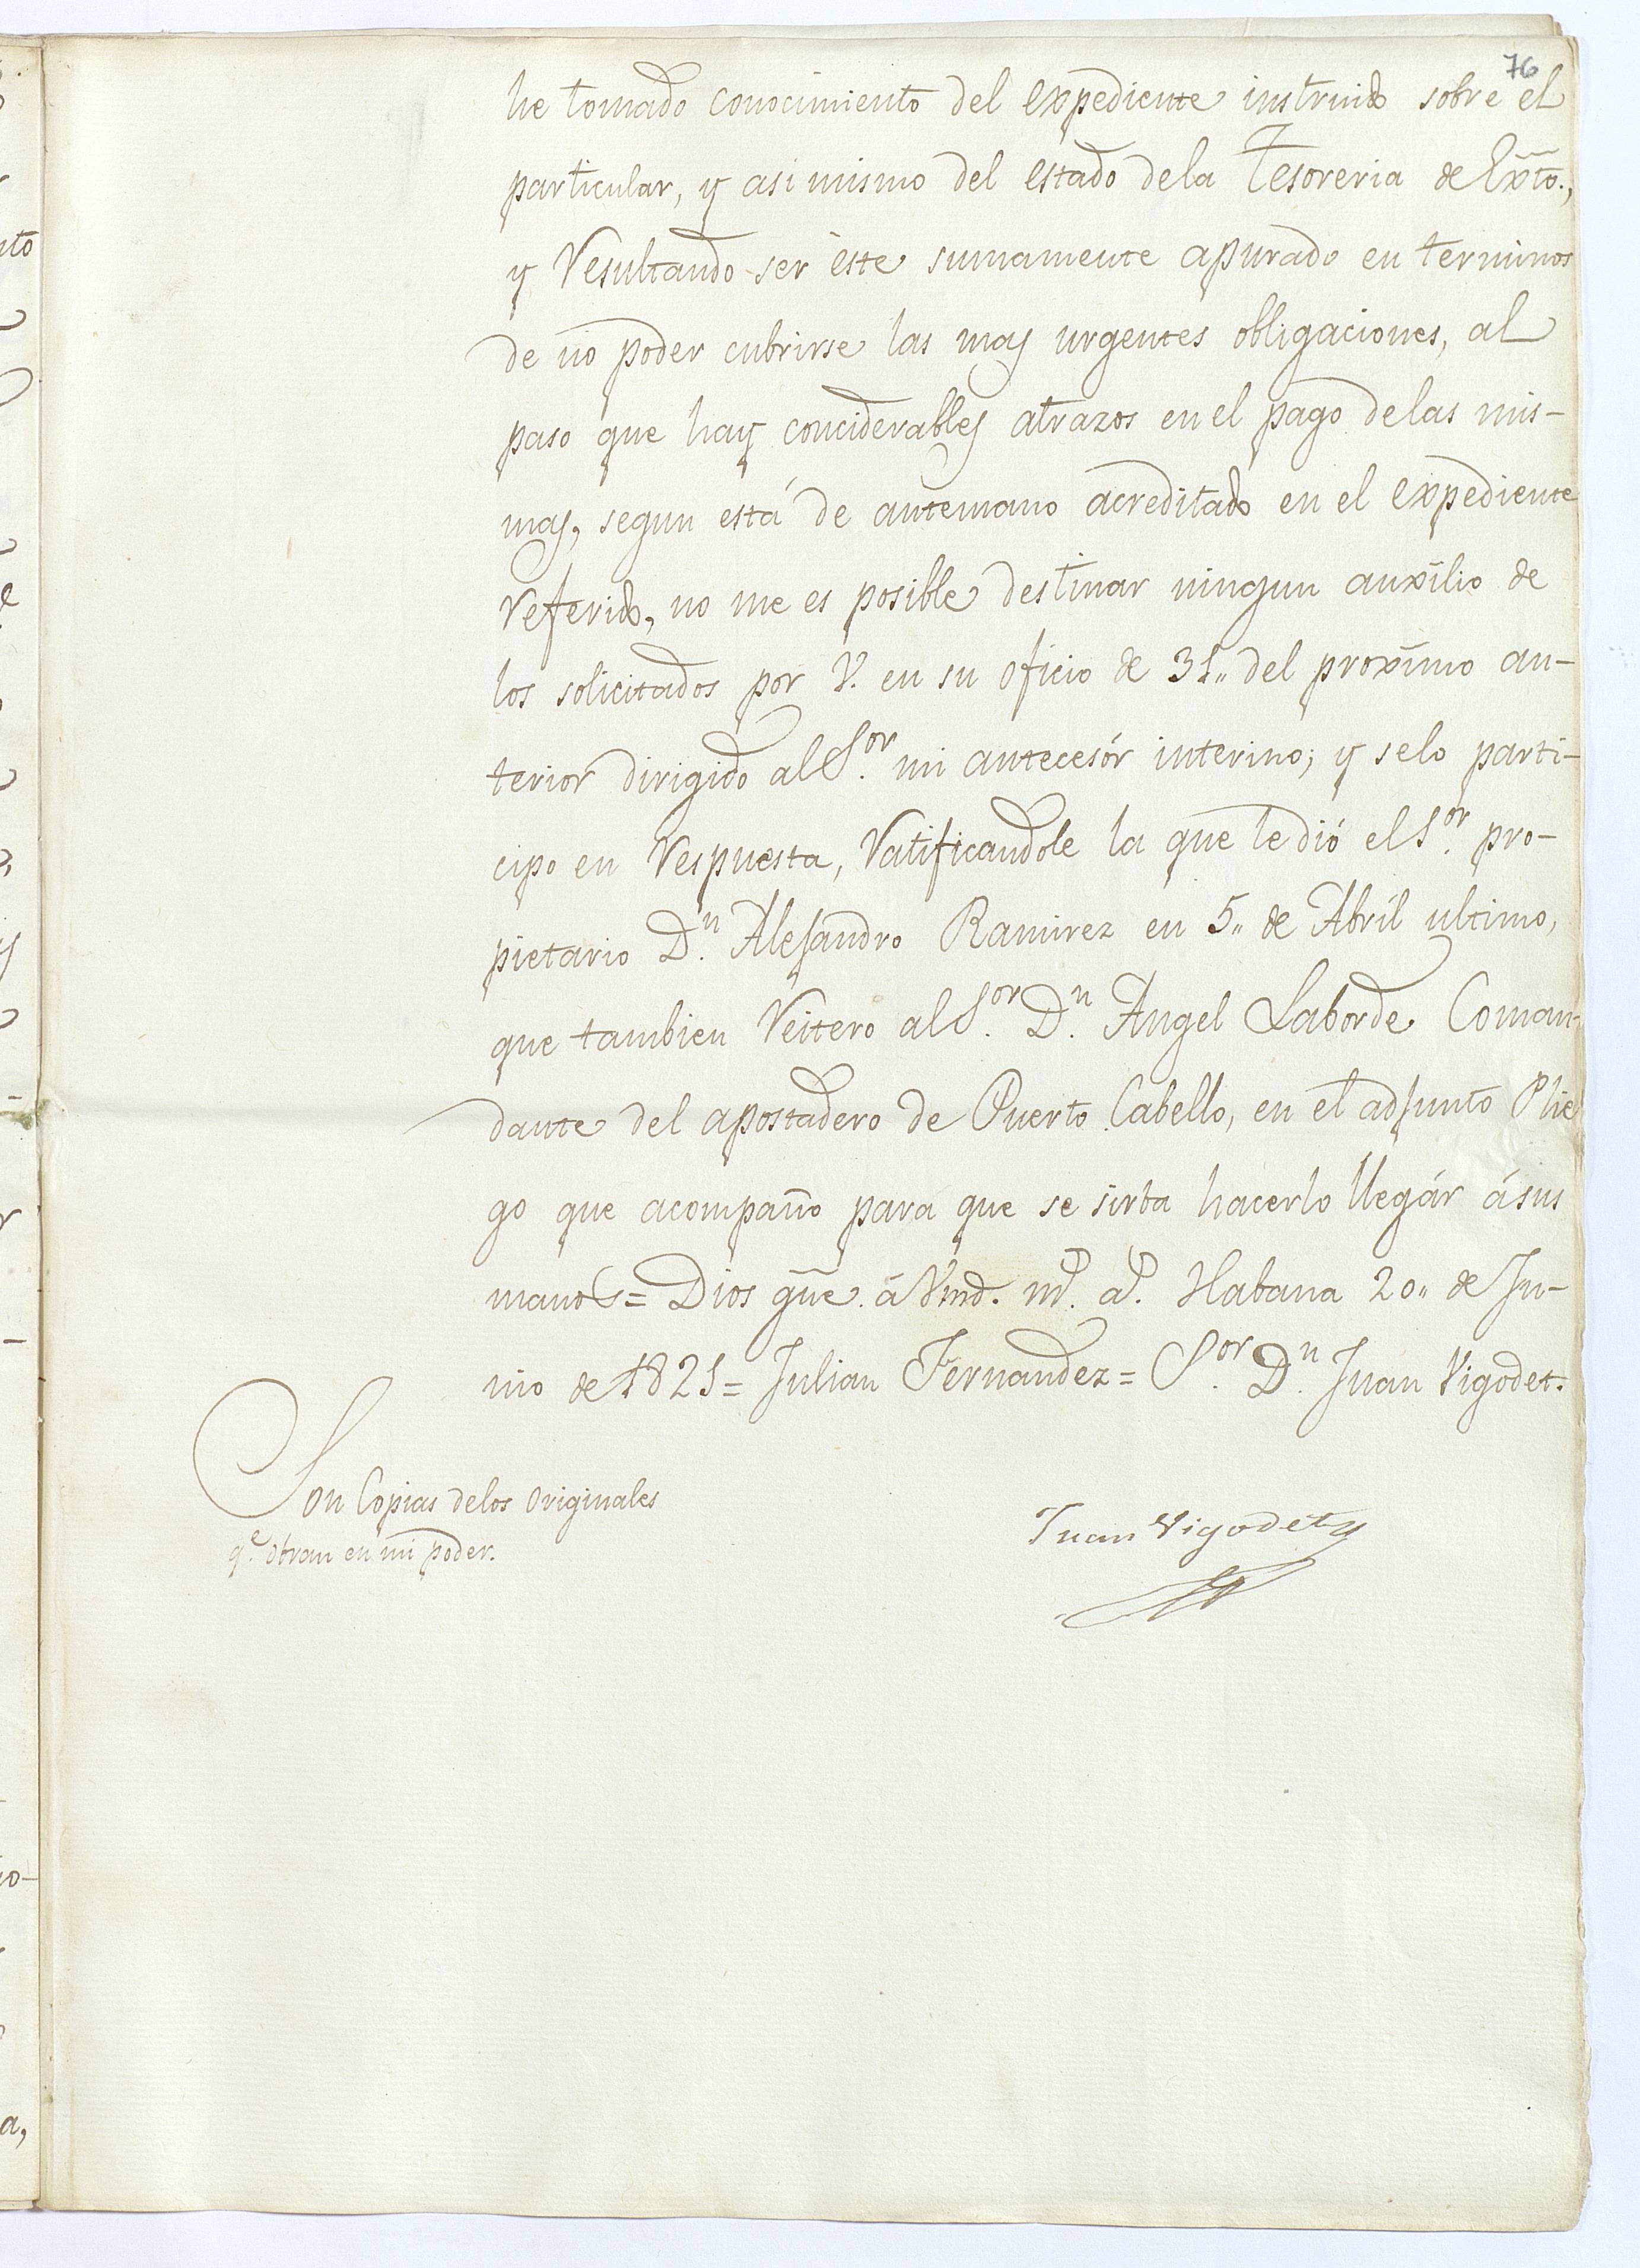 76
he tomado conocimiento del expediente instruido sobre el
particular, y asi mismo del estado dela Tesoreria de Exto.,
y Resultando ser éste sumamente apurado en terminos
de no poder cubrirse las mas urgentes obligaciones, al
paso que hay conciderables atrazos en el pago delas mis-
mas, segun está de antemano acreditado en el expediente
Referido, no me es posible destinar ningun auxilio de
los solicitados por V. en su oficio de 31,, del proximo an-
terior dirigido al Sor. mi antecesór interino; y selo parti-
cipo en Respuesta, Ratificandole la que le dió el Sor. pro-
pietario Dn. Alejandro Ramirez en 5,, de Abril ultimo,
que tambien Reitero al Sor. Dn. Angel Laborde Coman-
dante del apostadero de Puerto Cabello, en el adjunto Plie
go que acompaño para que se sirba hacerlo llegár á sus
manos = Dios gue. á Vmd. ms. as. Habana 20,, de Ju-
nio de 1821 = Julian Fernandez = Sor. Dn. Juan Vigodet.
Son Copias delos Originales
qe. obran en mi poder.
Juan Vigodet